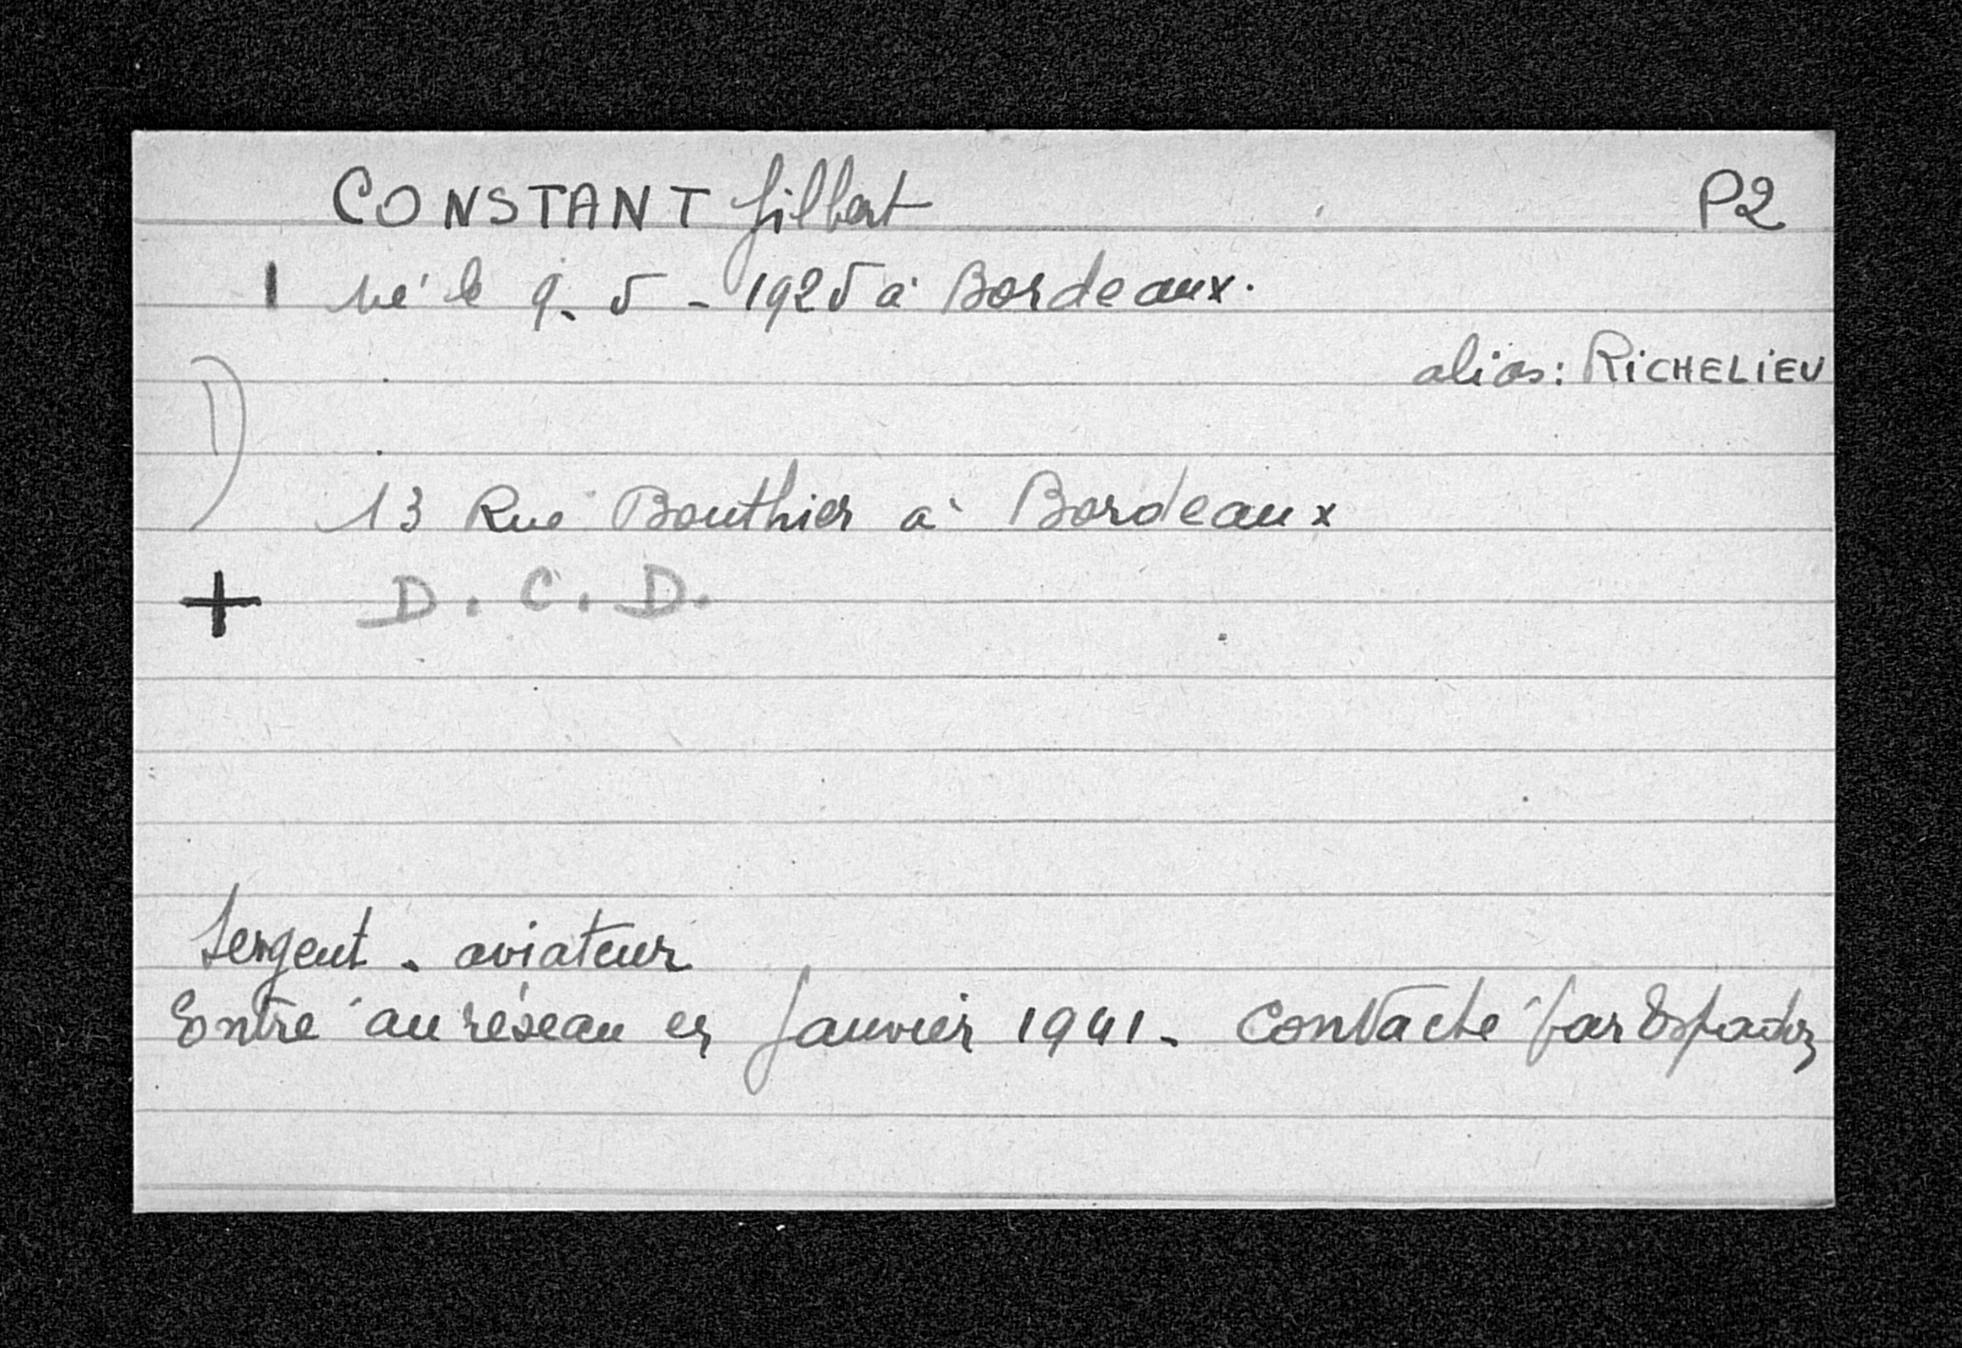 CONSTANT Gilbert P2
1 né le 9. 5 - 1925 à Bordeaux.
alias: RICHELIEU
1)
13 Rue Bouthier à Bordeaux
+ D. C. D.
Sergent - aviateur
Entré au réseau en Janvier 1941. Contacté par